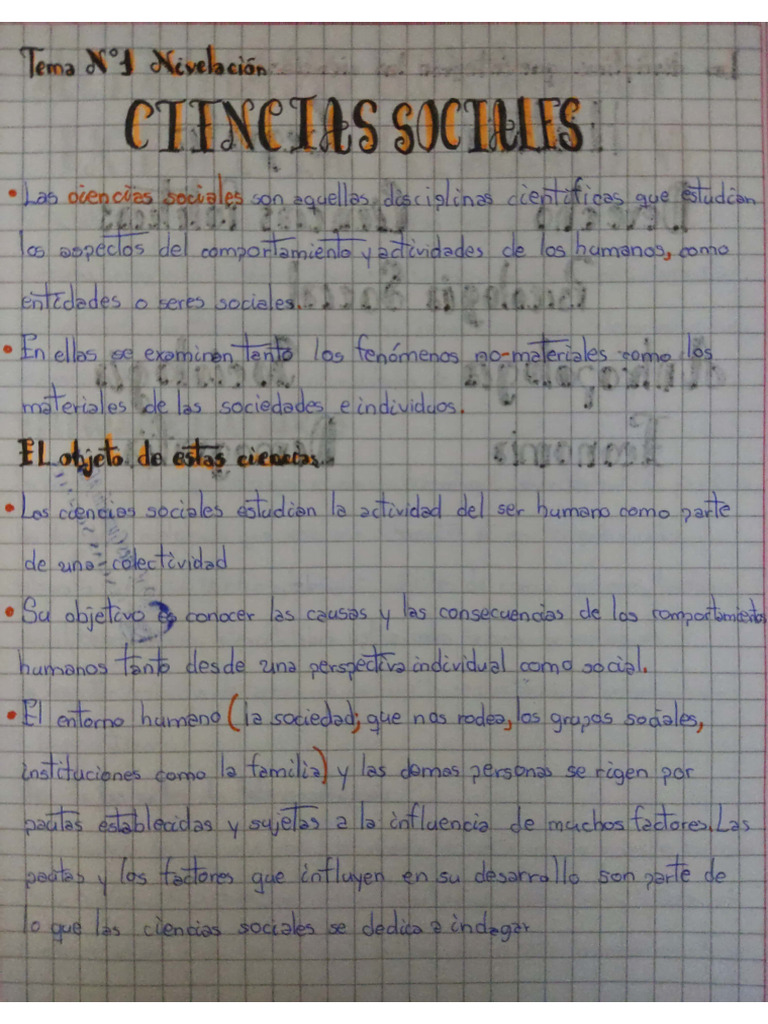 Tema N°1 Nivelación
CIENCIAS SOCIALES
• Las ciencias sociales son aquellas disciplinas científicas que estudian
los aspectos del comportamiento y actividades de los humanos, como
entidades o seres sociales.
• En ellas se examinan tanto los fenómenos no-materiales como los
materiales de las sociedades e individuos.
El objeto de estas ciencias.
• Las ciencias sociales estudian la actividad del ser humano como parte
de una colectividad
• Su objetivo es conocer las causas y las consecuencias de los comportamientos
humanos tanto desde una perspectiva individual como social.
• El entorno humano (la sociedad; que nos rodea, los grupos sociales,
instituciones como la familia) y las demas personas se rigen por
pautas establecidas y sujetas a la influencia de muchos factores. Las
pautas y los factores que influyen en su desarrollo son parte de
lo que las ciencias sociales se dedica a indagar